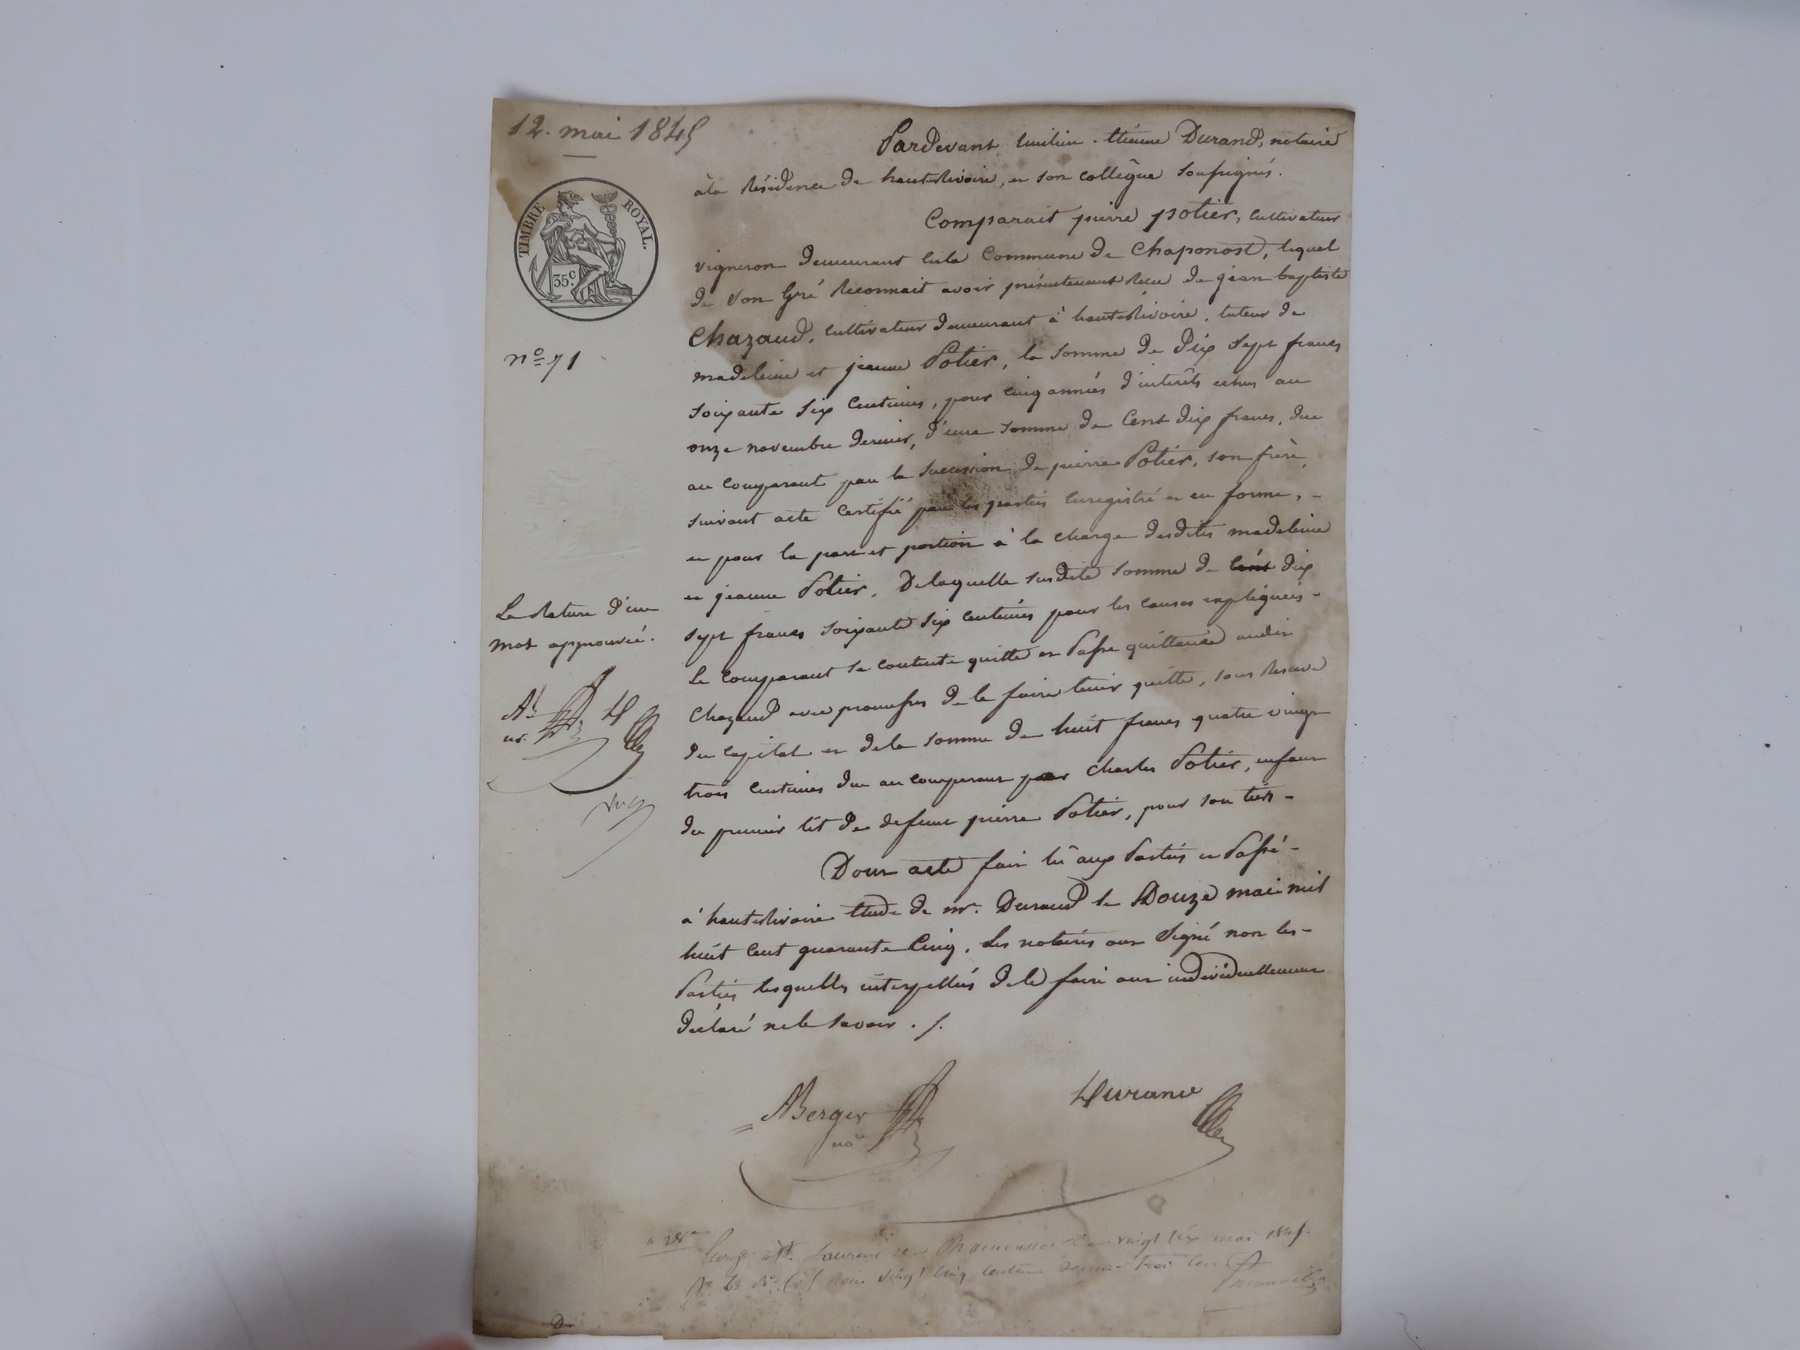 12. mai 1845
TIMBRE ROYAL.
35 c.
nº 71
Pardevant Emilien-Etienne Durand, notaire
à la résidence de hauterivoire, et son collègue soussignés.
Comparait pierre potier, cultivateur
vigneron demeurant en la Commune de Chaponost, lequel
de son Gré Reconnait avoir présentement Recu de jean baptiste
Chazaud, cultivateur demeurant à hauterivoire, tuteur de
madeleine et jeanne Potier, la somme de Dix sept francs
soixante six centimes, pour cinq années d'interêts echus au
onze novembre dernier, d'une somme de Cent dix francs, due
au comparant par la succession de pierre Potier, son frère,
suivant acte certifié par les parties Enregistré et en forme, -
et pour la part et portion à la charge desdites madeleine
et jeanne Potier, De laquelle susdite somme de cent dix
sept francs soixante six centimes pour les causes expliquées -
Le comparant se contente quitte et Passe quittance audit
Chazaud avec promesses de le faire tenir quitte, sous Reserve
du capital et de la somme de huit francs quatre vingt
trois centimes due au comparant par Charles Potier, enfant
du premier lit de defunt pierre Potier, pour son tiers -
Dont acte fait lû aux Parties et Passé -
à hauterivoire Etude de mr. Durand le Douze mai mil
huit cent quarante Cinq. Les notaires ont Signé non les -
Parties lesquelles interpellées de le faire ont individuellement
déclaré ne le savoir ./.
La Rature d'un
mot approuvée.
ABerger
no
Durand
Enreg. à St. Laurent de Chamousset le vingt six mai 1845.
vingt cinq centimes